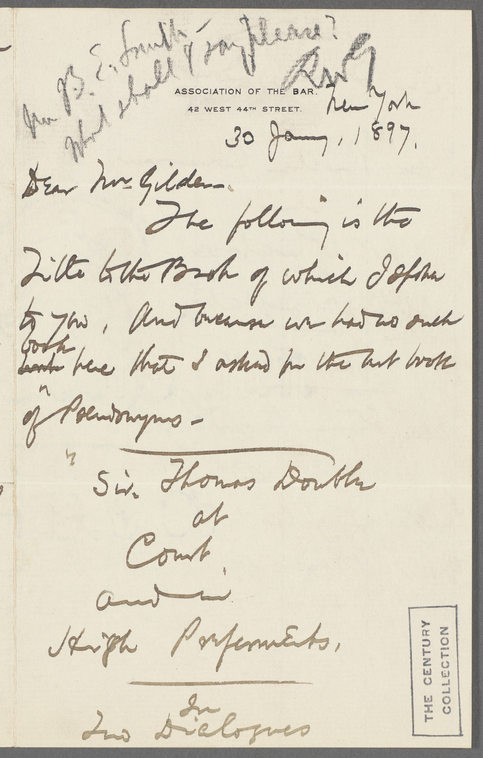 Mr B. E. Smith
What shall I say please?
RWG
ASSOCIATION OF THE BAR.
42 WEST 44TH STREET.
New York
30 Jany, 1897.
Dear Mr Gilder.
The following is the
Title to the Book of which I spoke
to you, And because we had no such
book
here that I asked for the last book
of "Pseudonyms -
"Sir Thomas Double
at
Court
and in
High Preferments.
In
Two Dialogues
THE CENTURY
COLLECTION